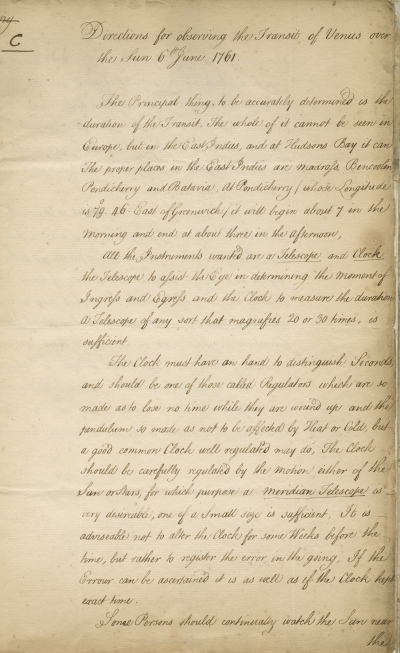 C
Directions for observing the Transit of Venus over
the Sun 6th June 1761.
The Principal thing to be accurately determined is the
duration of the Transit, The whole of it cannot be seen in
Europe, but in the East Indies, and at Hudsons Bay it can
The proper places in the East Indies are madrass, Bencoolen
Pondicherry and Batavia. At Pondicherry (whose Longitude
is 79°. 46. East of Greenwich) it will begin about 7 in the
Morning and end at about three in the afternoon,
All the Instruments wanted are a Telescope and Clock
the Telescope to assist the Eye in determining the Moment of
Ingress and Egress and the Clock to measure the duration
A Telescope of any sort that magnifies 20 or 30 times, is
sufficient
The Clock must have an hand to distinguish Seconds,
and should be one of those caled Regulators which are so
made as to lose no time while they are wound up and the
pendulum so made as not to be affected by Heat or Cold, but
a good common Clock well regulated may do, The Clock
should be carefully regulated by the motion either of the
Sun or Stars, for which purpose a Meridian Telescope is
very desireable, one of a Small size is sufficient. It is
adviseable not to alter the Clock for some Weeks before the
time, but rather to register the error in the going. If the
Errour can be ascertained it is as well as if the Clock kept
exact time.
Some Persons should continually watch the Sun near
the